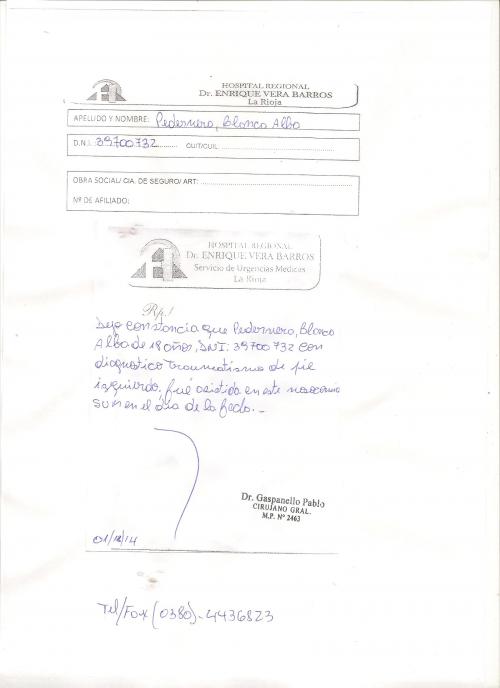 HOSPITAL REGIONAL
Dr. ENRIQUE VERA BARROS
La Rioja
APELLIDO Y NOMBRE: Pedernera, Blanca Alba
D.N.I.: 39700732 CUIT/CUIL:
OBRA SOCIAL/ CIA. DE SEGURO/ ART:
Nº DE AFILIADO:
HOSPITAL REGIONAL
Dr. ENRIQUE VERA BARROS
Servicio de Urgencias Médicas
La Rioja
Rp./
Dejo constancia que Pedernera, Blanca
Alba de 18 años, DNI: 39700732 con
diagnostico traumatismo de pie
izquierdo, fué asistida en este nosocomio
en el día de la fecha.-
Dr. Gaspanello Pablo
CIRUJANO GRAL.
M.P. Nº 2463
01/12/14
Tel/Fax (0380)-4436823